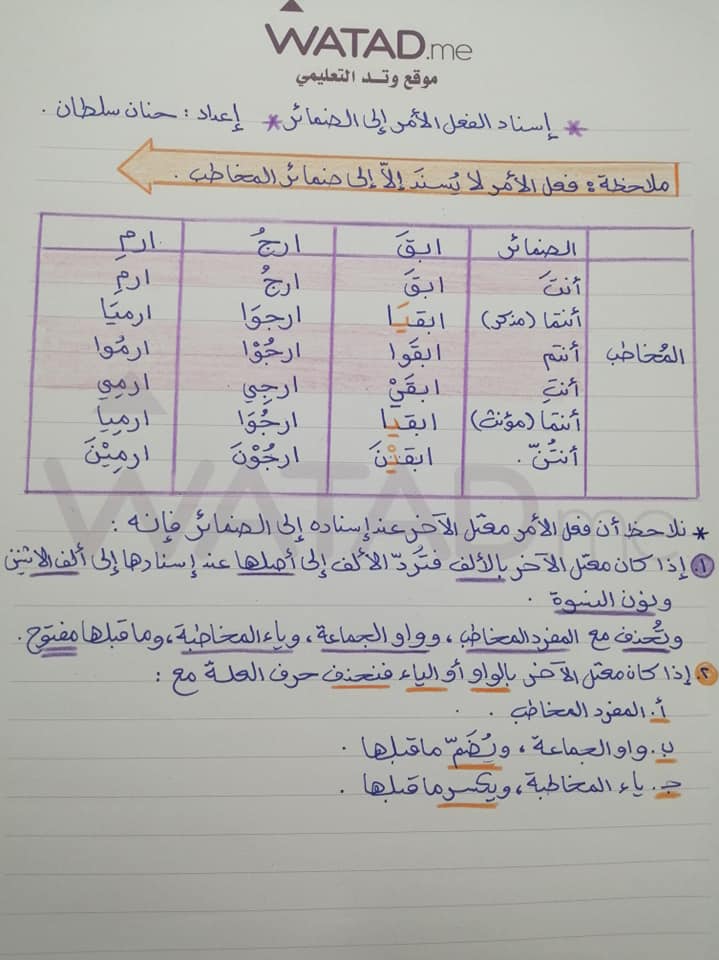 WATAD.me
موقع وتد التعليمي
* إسناد الفعل الأمر إلى الضمائر * إعداد : حنان سلطان .
ملاحظة : فعل الأمر لا يُسنَد إلّا إلى ضمائر المخاطب .
الضمائر ابقَ ارجُ ارمِ
أنتَ ابقَ ارجُ ارمِ
أنتما (مذكر) ابقيَا ارجوَا ارميَا
المُخاطب أنتم ابقَوا ارجُوْا ارمُوا
أنتِ ابقَيْ ارجِي ارمِي
أنتما (مؤنث) ابقيا ارجُوَا ارمِيا
أنتُنّ . ابقيْنَ ارجُوْنَ ارمِيْنَ
* نلاحظ أن فعل الأمر معتل الآخر عند إسناده إلى الضمائر فإنه :
١. إذا كان معتل الآخر بالألف فتُردّ الألف إلى أصلها عند إسنادها إلى ألف الاثنين
ونون النسوة .
وتُحذف مع المفرد المخاطب ، وواو الجماعة ، وياء المخاطبة ، وما قبلها مفتوح .
٢. إذا كان معتل الآخر بالواو أو الياء فنحذف حرف العلة مع :
أ. المفرد المخاطب .
ب. واو الجماعة ، ويُضَمّ ما قبلها .
جـ. ياء المخاطبة ، ويكسر ما قبلها .
WATAD.me